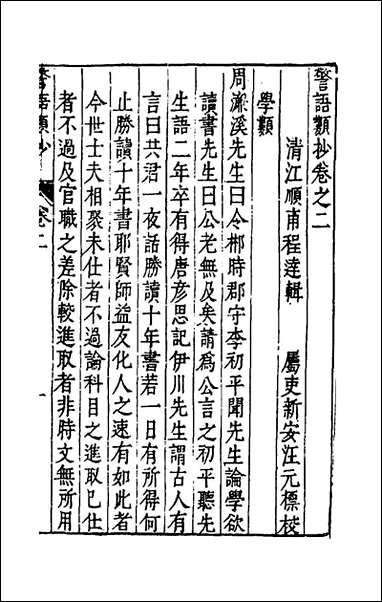 警語類抄卷之二
清江順甫程達輯　屬吏新安汪元標校
學類
周濂溪先生曰令郴時郡守李初平聞先生論學欲
讀書先生曰公老無及矣請爲公言之初平聽先
生語二年卒有得唐彥思記伊川先生謂古人有
言曰共君一夜話勝讀十年書若一日有所得何
止勝讀十年書耶賢師益友化人之速有如此者
今世士夫相聚未仕者不過論科目之進取已仕
者不過及官職之差除較進取者非時文無所用
警語類抄　卷二　一